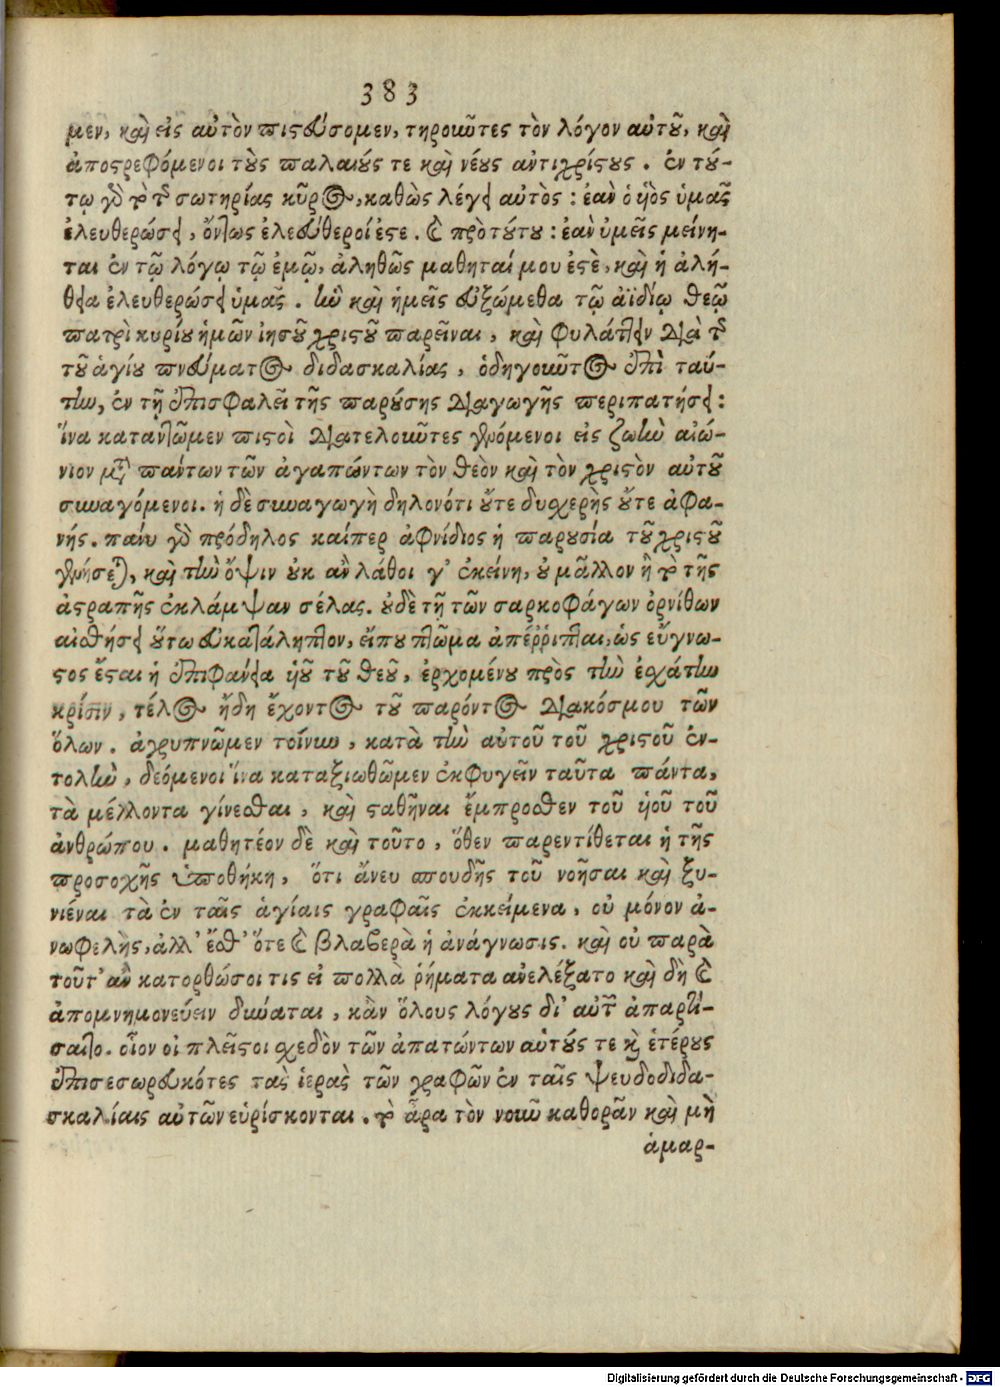 383
μεν, καὶ εἰς αὐτὸν πιστεύσομεν, τηροῦντες τὸν λόγον αὐτοῦ, καὶ
ἀποστρεφόμενοι τοὺς παλαιούς τε καὶ νέους ἀντιχρίστους. ἐν τού-
τῳ γὰρ τὸ τῆς σωτηρίας κῦρος, καθὼς λέγει αὐτὸς: ἐὰν ὁ ὑὸς ὑμᾶς
ἐλευθερώσει, ὄντως ἐλεύθεροί ἐστε. καὶ πρὸ τούτου: ἐὰν ὑμεῖς μείνη-
ται ἐν τῷ λόγῳ τῷ ἐμῷ, ἀληθῶς μαθηταί μου ἐστὲ, καὶ ἡ ἀλή-
θεια ἐλευθερώσει ὑμᾶς. ἣν καὶ ἡμεῖς εὐξώμεθα τῷ ἀϊδίῳ θεῷ
πατρὶ κυρίου ἡμῶν ἰησοῦ χριστοῦ παρεῖναι, καὶ φυλάττειν διὰ τῆς
τοῦ ἁγίου πνεύματος διδασκαλίας, ὁδηγοῦντος ἐπὶ ταύ-
την, ἐν τῇ ἐπισφαλεῖ τῆς παρούσης διαγωγῆς περιπατήσει:
ἵνα καταντῶμεν πιστοὶ διατελοῦντες γενόμενοι εἰς ζωὴν αἰώ-
νιον μετὰ πάντων τῶν ἀγαπώντων τὸν θεὸν καὶ τὸν χριστὸν αὐτοῦ
συναγόμενοι. ἡ δὲ συναγωγὴ δηλονότι οὔτε δυχερὴς οὔτε ἀφα-
νής. πάνυ γὰρ πρόδηλος καίπερ ἀφνίδιος ἡ παρουσία τοῦ χριστοῦ
γενήσεται, καὶ τὴν ὄψιν οὐκ ἂν λάθοι γ' ἐκείνη, οὐ μᾶλλον ἢ τὸ τῆς
ἀστραπῆς ἐκλάμψαν σέλας. οὐδὲ τῇ τῶν σαρκοφάγων ὀρνίθων
αἰσθήσει οὕτω εὐκατάληπτον, εἴπου πτῶμα ἀπέῤῥιπται, ὡς εὔγνω-
στος ἔσται ἡ ἐπιφάνεια ὑοῦ τοῦ θεοῦ, ἐρχομένου πρὸς τὴν ἐσχάτην
κρίσιν, τέλος ἤδη ἔχοντος τοῦ παρόντος διακόσμου τῶν
ὅλων. ἀγρυπνῶμεν τοίνυν, κατὰ τὴν αὐτοῦ τοῦ χριστοῦ ἐν-
τολὴν, δεόμενοι ἵνα καταξιωθῶμεν ἐκφυγεῖν ταῦτα πάντα,
τὰ μέλλοντα γίνεσθαι, καὶ σταθῆναι ἔμπροσθεν τοῦ ὑοῦ τοῦ
ἀνθρώπου. μαθητέον δὲ καὶ τοῦτο, ὅθεν παρεντίθεται ἡ τῆς
προσοχῆς ὑποθήκη, ὅτι ἄνευ σπουδῆς τοῦ νοῆσαι καὶ ξυ-
νιέναι τὰ ἐν ταῖς ἁγίαις γραφαῖς ἐκκείμενα, οὐ μόνον ἀ-
νωφελὴς, ἀλλ' ἔσθ' ὅτε καὶ βλαβερὰ ἡ ἀνάγνωσις. καὶ οὐ παρὰ
τοῦτ' ἂν κατορθώσοι τις εἰ πολλὰ ῥήματα ἀνελέξατο καὶ δὴ καὶ
ἀπομνημονεύειν δύναται, κἂν ὅλους λόγους δι' αὐτῶν ἀπαρτί-
σαιτο. οἷον οἱ πλεῖστοι σχεδὸν τῶν ἀπατώντων αὑτούς τε καὶ ἑτέρους
ἐπισεσωρευκότες τὰς ἱερὰς τῶν γραφῶν ἐν ταῖς ψευδοδιδα-
σκαλίαις αὐτῶν εὑρίσκονται. τὸ ἆρα τὸν νοῦν καθορᾶν καὶ μὴ
ἁμαρ-
Digitalisierung gefördert durch die Deutsche Forschungsgemeinschaft - DFG